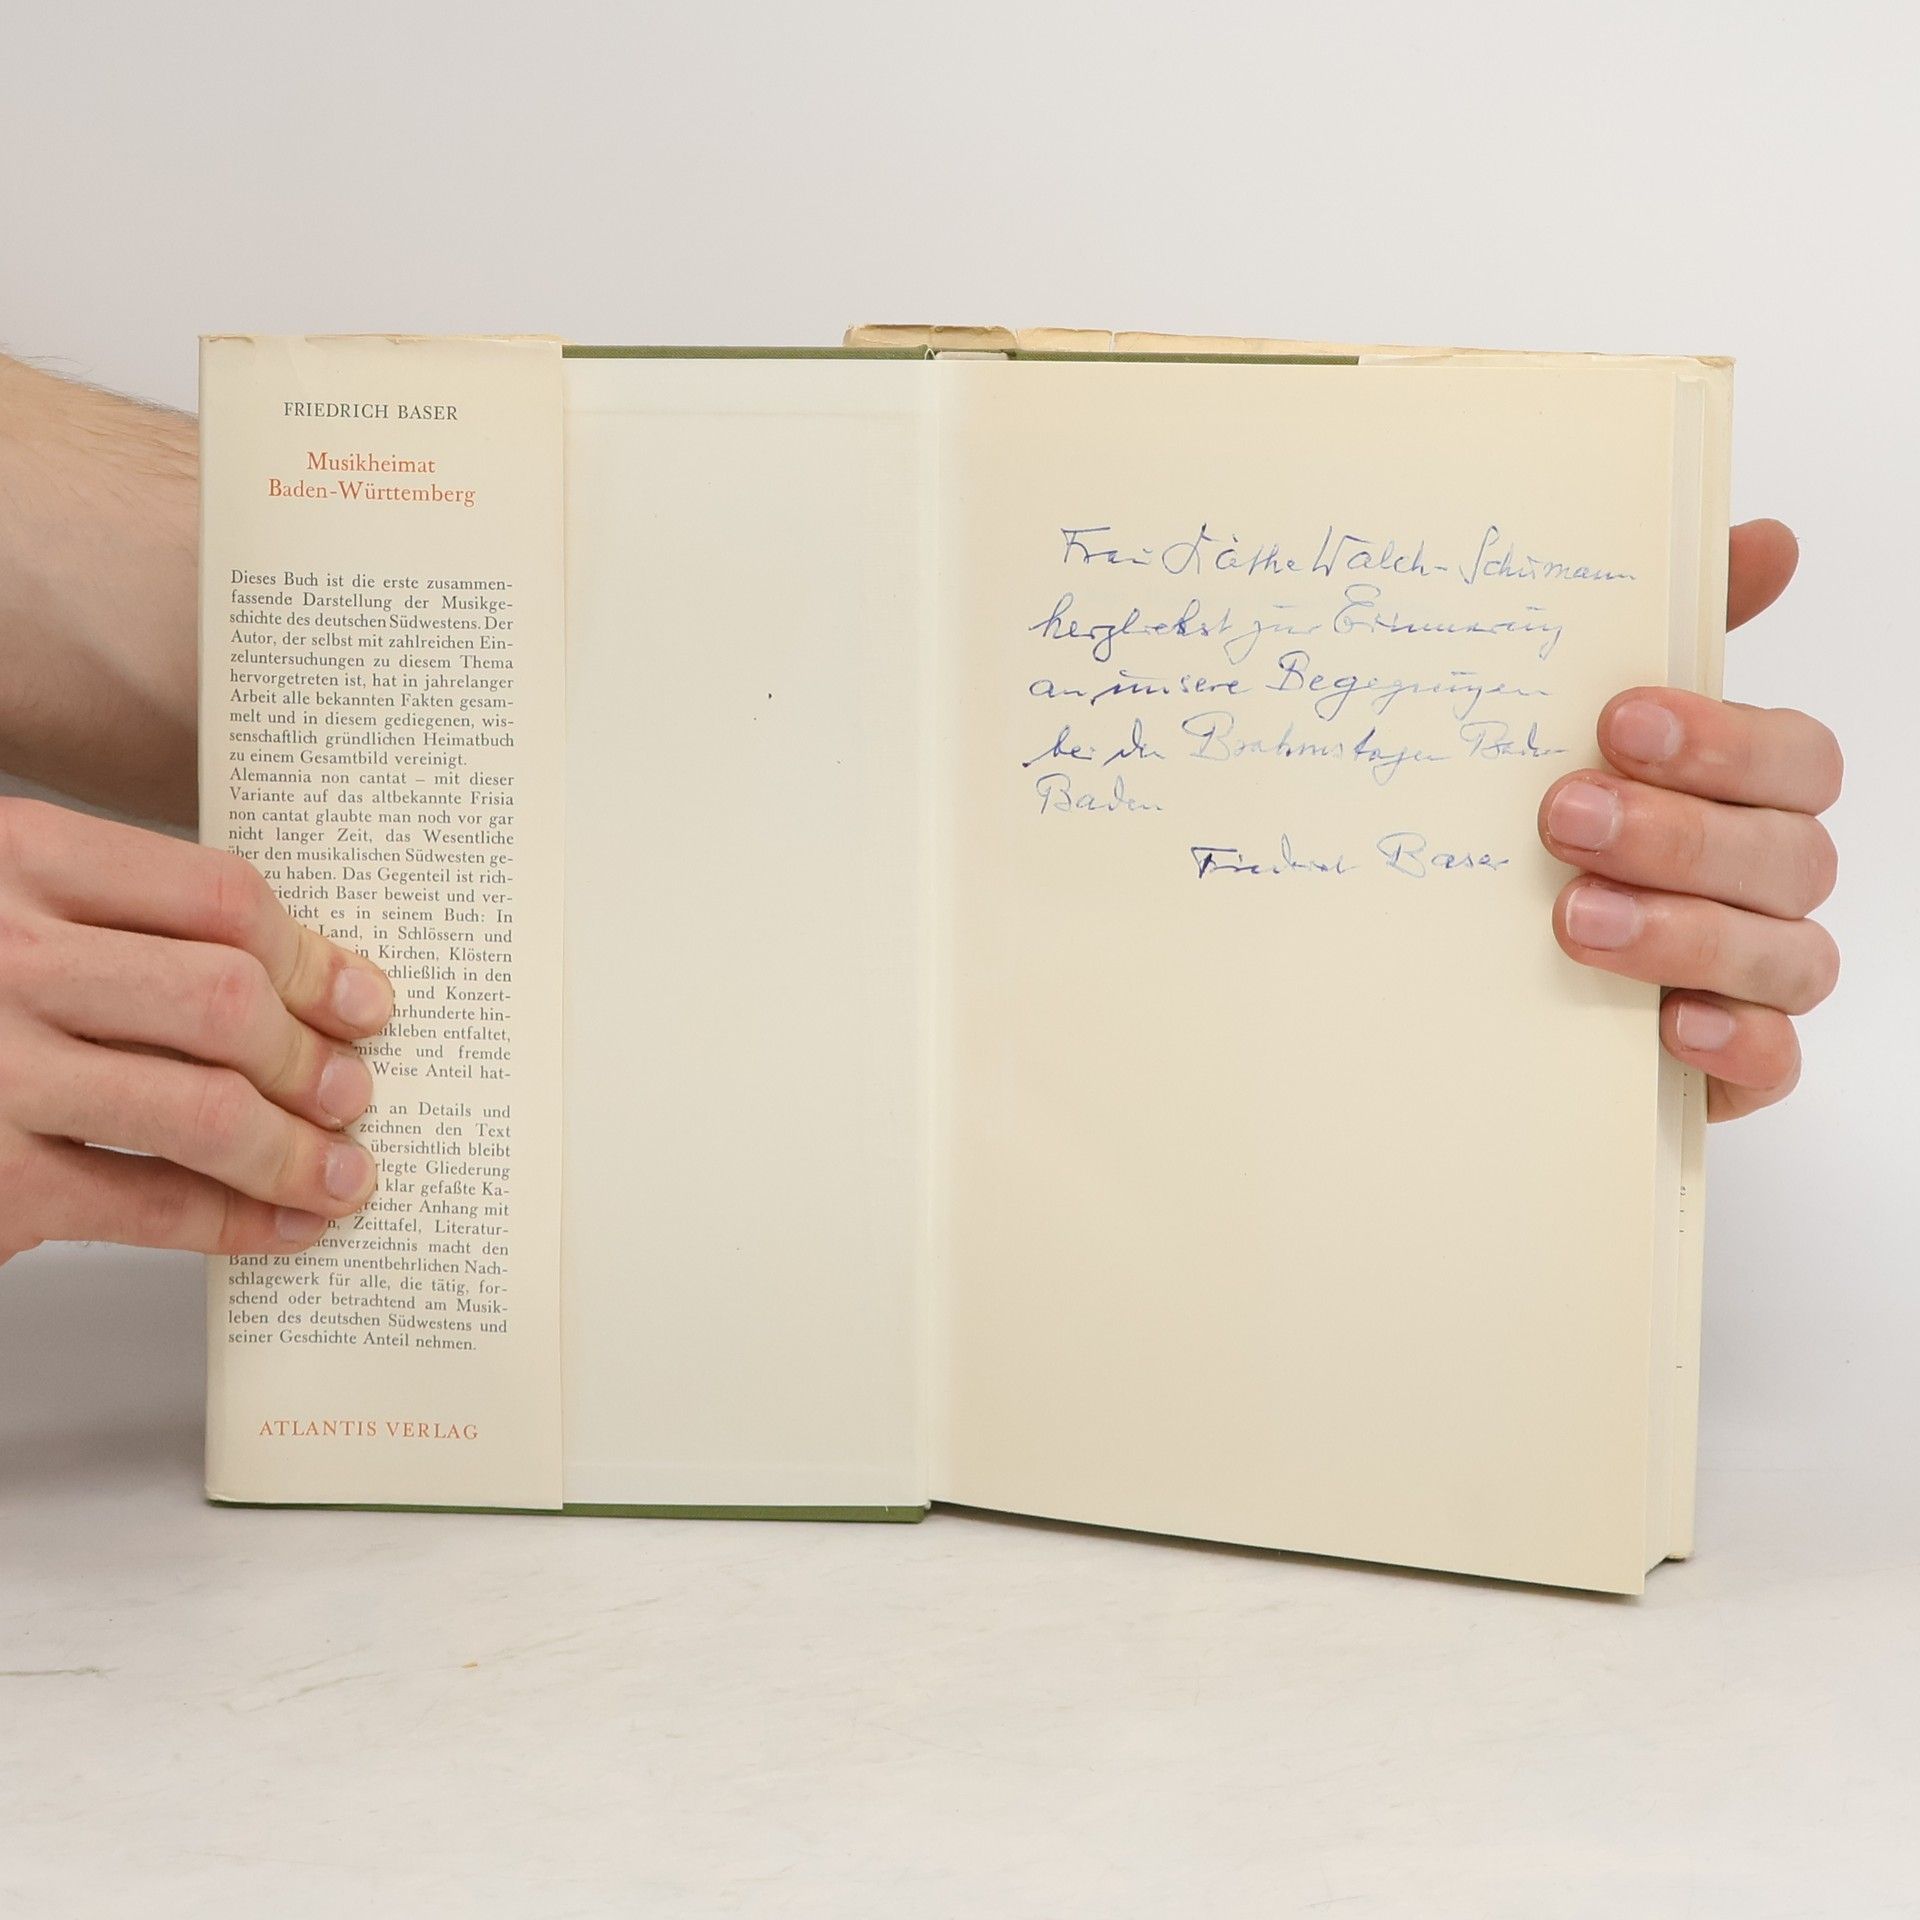 FRIEDRICH BASER
Musikheimat
Baden-Württemberg
Dieses Buch ist die erste zusammen-
fassende Darstellung der Musikge-
schichte des deutschen Südwestens. Der
Autor, der selbst mit zahlreichen Ein-
zeluntersuchungen zu diesem Thema
hervorgetreten ist, hat in jahrelanger
Arbeit alle bekannten Fakten gesam-
melt und in diesem gediegenen, wis-
senschaftlich gründlichen Heimatbuch
zu einem Gesamtbild vereinigt.
Alemannia non cantat – mit dieser
Variante auf das altbekannte Frisia
non cantat glaubte man noch vor gar
nicht langer Zeit, das Wesentliche
über den musikalischen Südwesten ge-
zu haben. Das Gegenteil ist rich-
riedrich Baser beweist und ver-
licht es in seinem Buch: In
Land, in Schlössern und
in Kirchen, Klöstern
schließlich in den
und Konzert-
hrhunderte hin-
sikleben entfaltet,
mische und fremde
Weise Anteil hat-
m an Details und
zeichnen den Text
übersichtlich bleibt
rlegte Gliederung
klar gefaßte Ka-
greicher Anhang mit
n, Zeittafel, Literatur-
enverzeichnis macht den
Band zu einem unentbehrlichen Nach-
schlagewerk für alle, die tätig, for-
schend oder betrachtend am Musik-
leben des deutschen Südwestens und
seiner Geschichte Anteil nehmen.
ATLANTIS VERLAG
Frau Käthe Walch-Schumann
herzlichst zur Erinnerung
an unsere Begegnungen
bei den Brahmstagen Baden-
Baden
Friedrich Baser